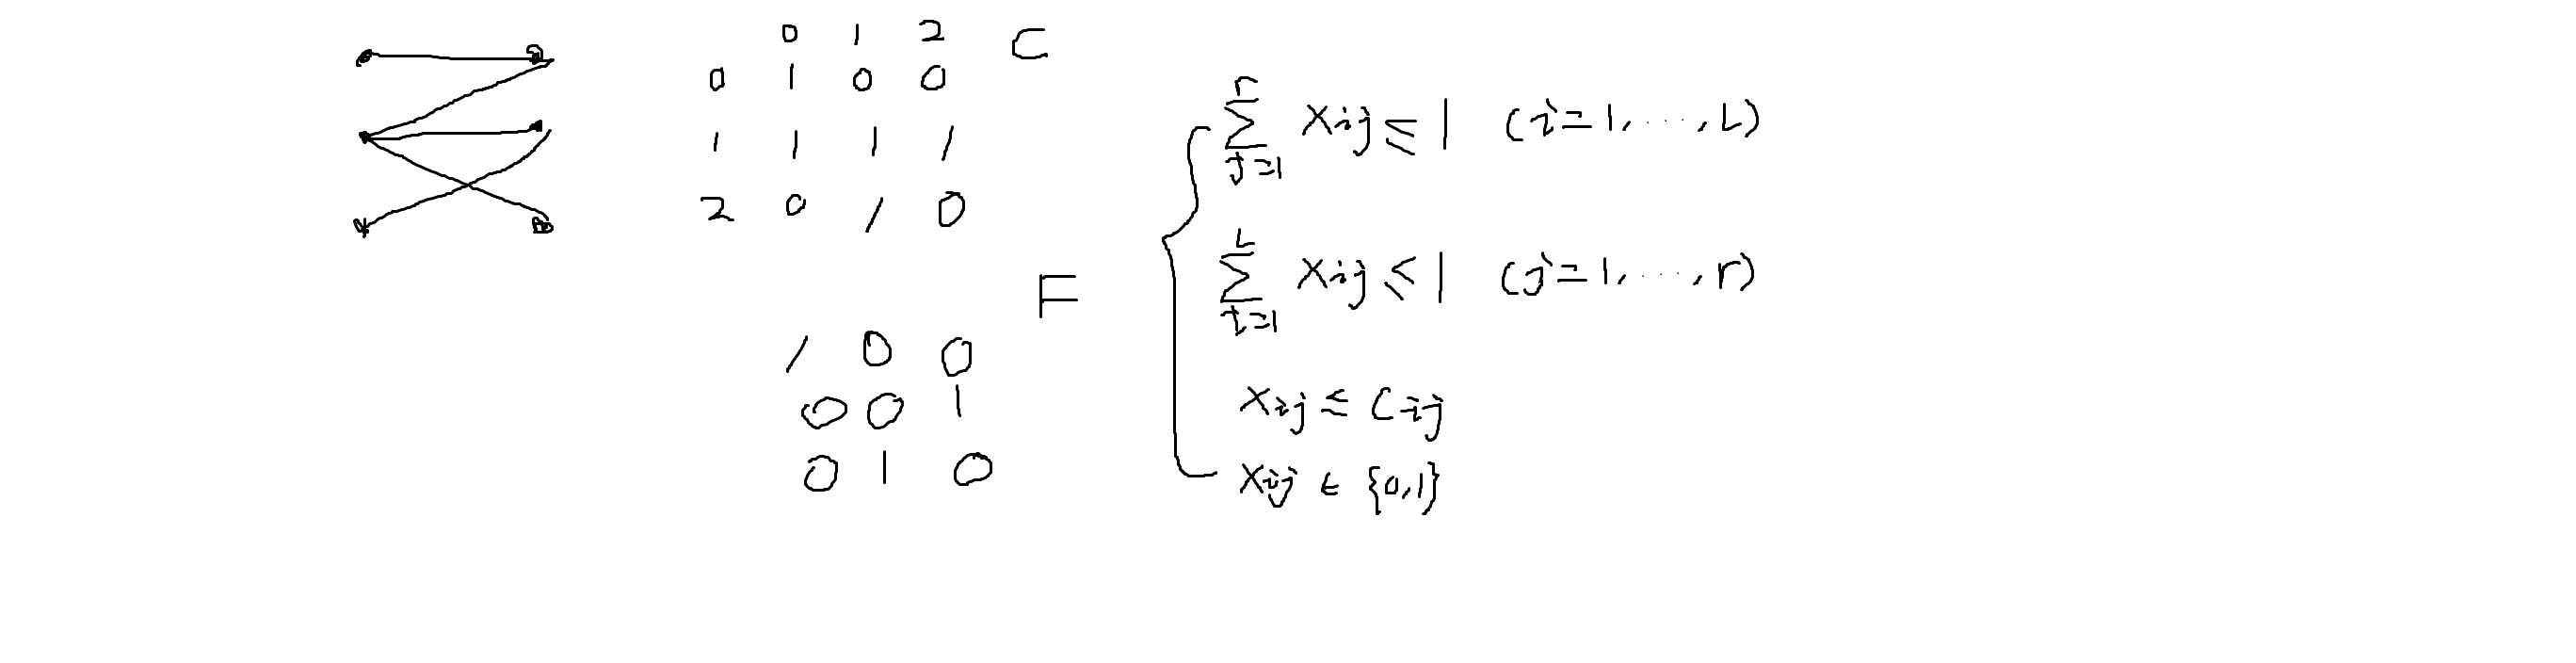 0 1 2 C
0 1 0 0
1 1 1 1
2 0 1 0
F
1 0 0
0 0 1
0 1 0
r
∑ xij ≤ 1 (i=1, ..., L)
j=1
L
∑ xij ≤ 1 (j=1, ..., r)
i=1
xij ≤ Cij
xij ∈ {0,1}